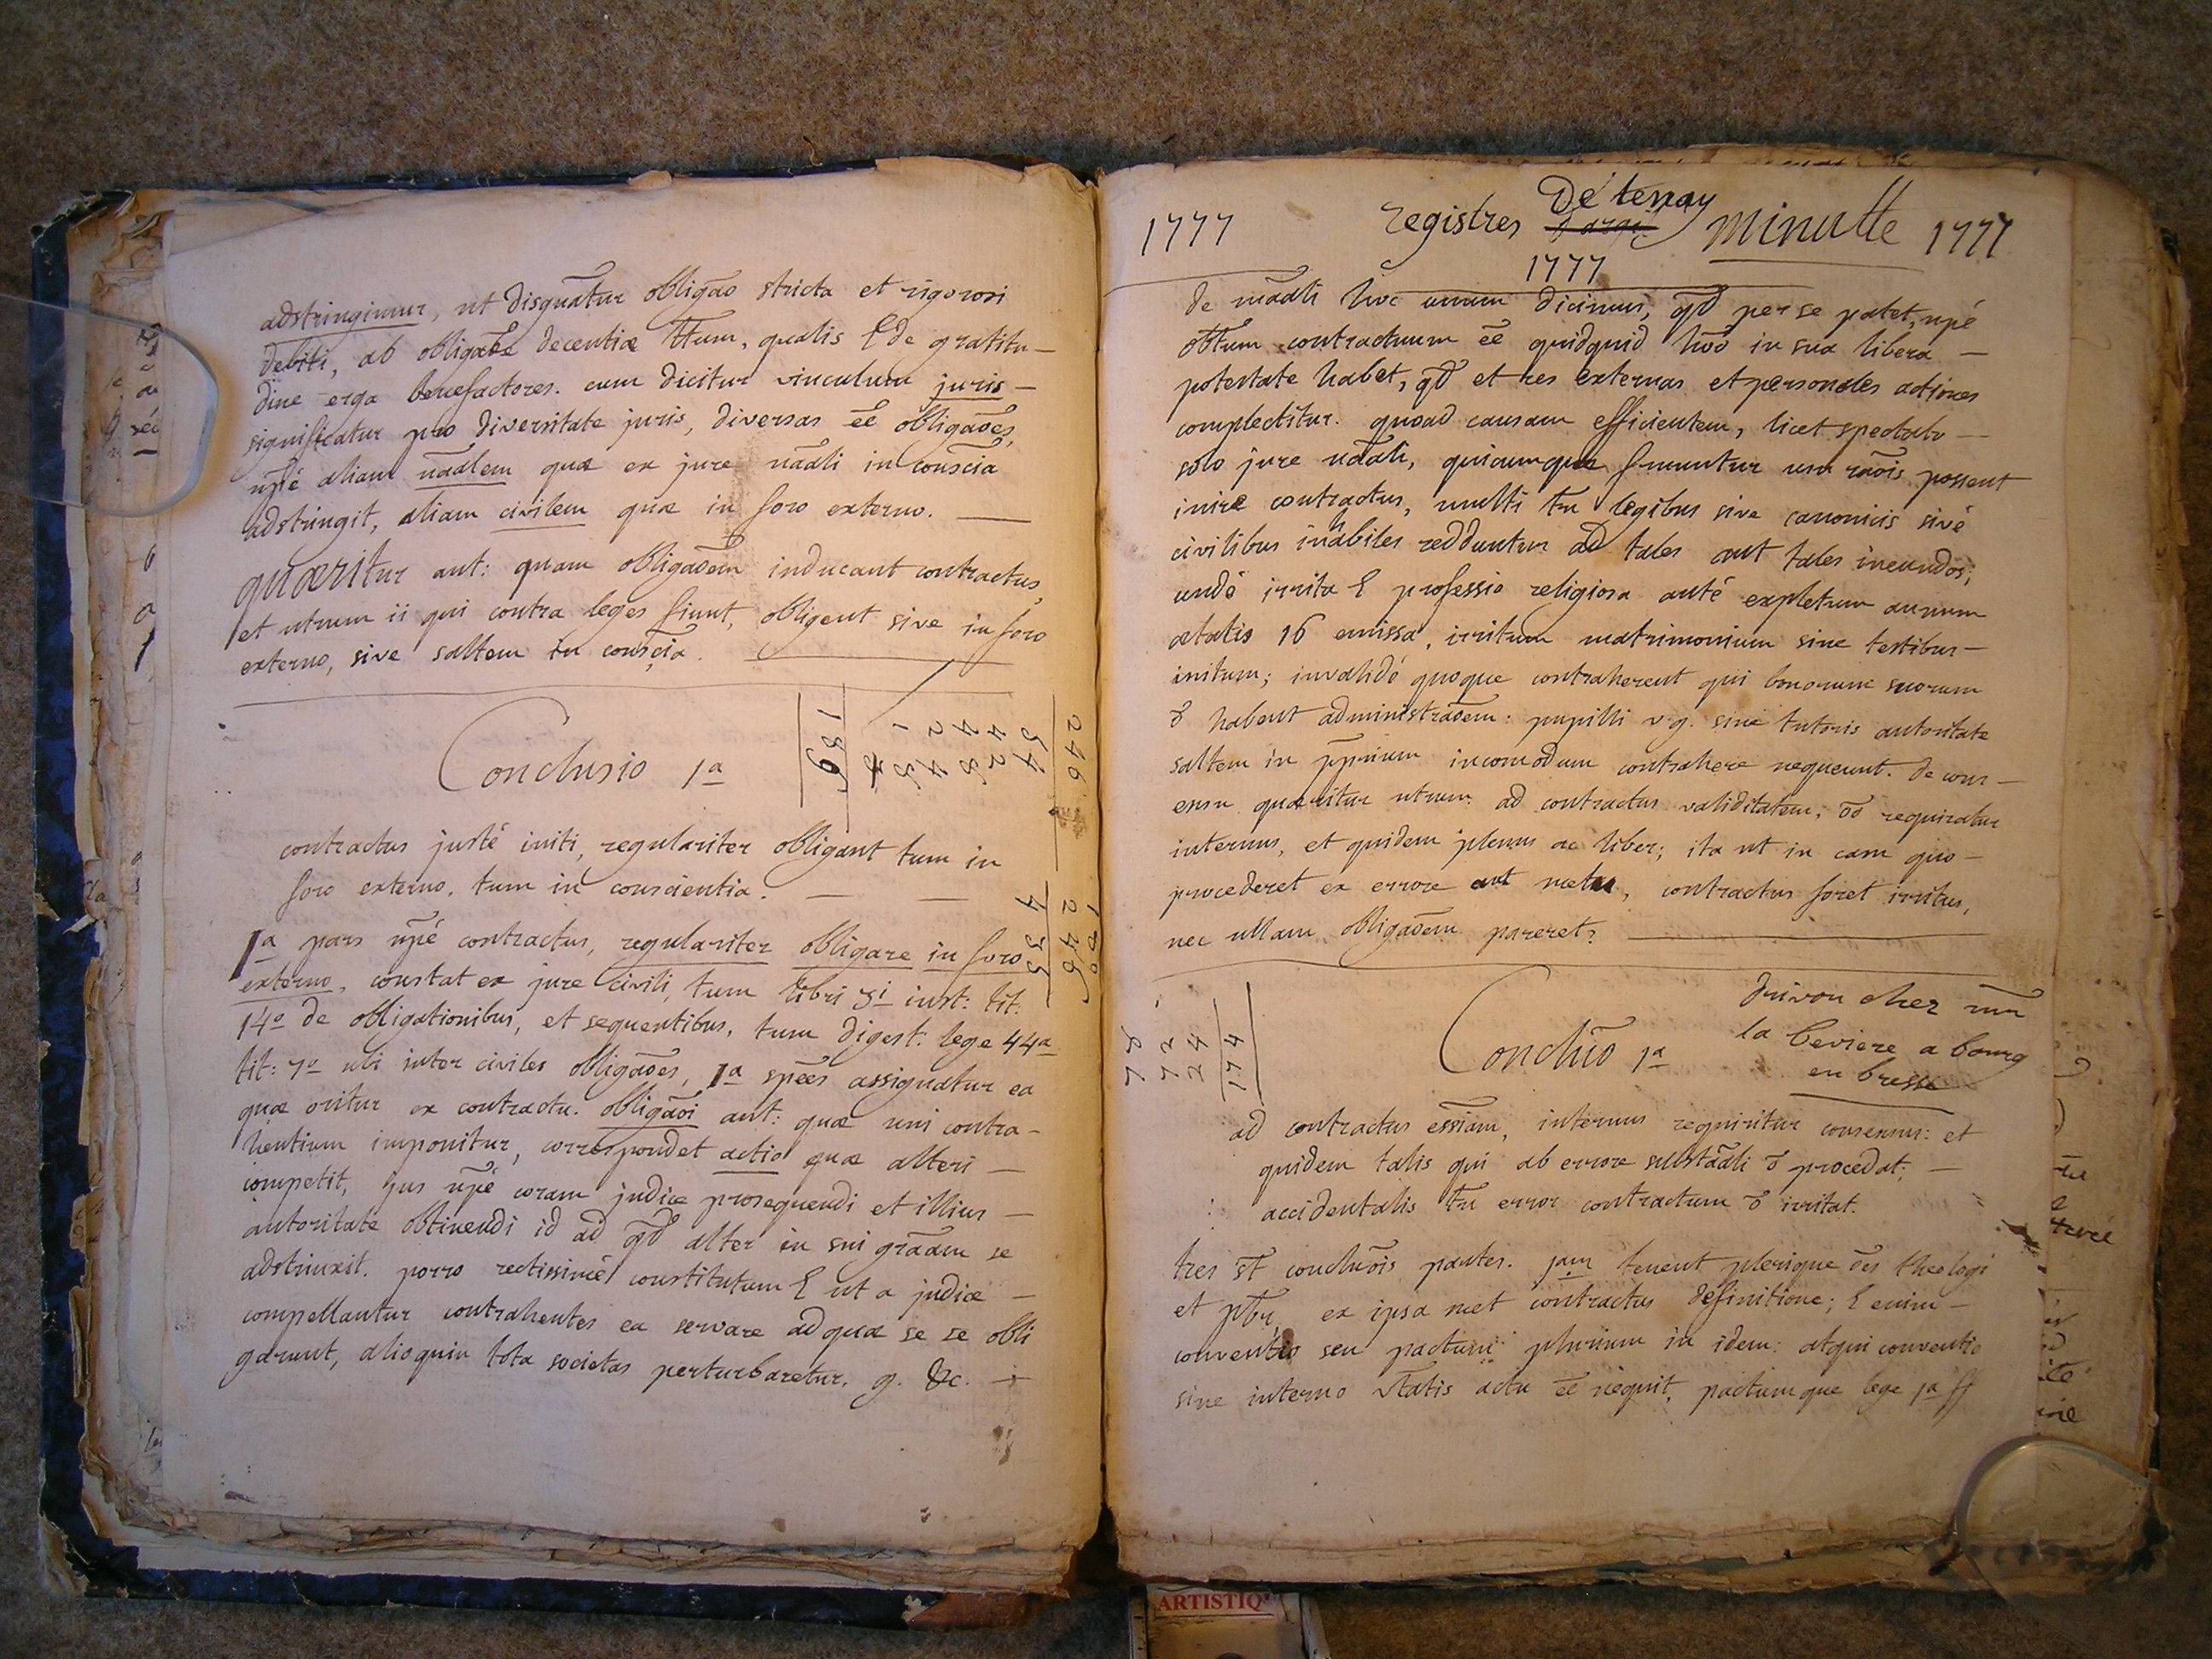 adstringimur, ut disguãtur obligão stricta et rigorosi
debiti, ab obligãõe decentiæ ttum, qualis E de gratitu-
dine erga benefactores. cum dicitur vinculum juris -
significatur pro diversitate juris, diversas ẽẽ obligãões,
npé aliam nãalem quæ ex jure nãali in conscia
adstringit, aliam civilem quæ in foro externo. —
quæritur aut: quam obligãõem inducant contractus,
et utrum ii qui contra leges fiunt, obligent sive in foro
externo, sive saltem in conscia.
Conclusio 1a
contractus justé initi, regulariter obligant tum in
foro externo, tum in conscientia. —
1a pars npé contractus, regulariter obligare in foro
externo, constat ex jure civili, tum libri 3i inst: tit.
14o de obligationibus, et sequentibus, tum digest. lege 44a
tit: 7o ubi inter civiles obligãões, 1a spẽes assignatur ea
quæ oritur ex contractu. obligãoi aut: quæ uni contra-
hentium imponitur, correspondet actio quæ alteri —
competit, jus npé coram judice prosequendi et illius —
autoritate obtinendi id ad qd alter in sui grãam se
adstrinxit. porro rectissimé constitutum E ut a judice —
compellantur contrahentes ea servare ad quæ se se obli
garunt, alioquin tota societas perturbaretur. g. &c. —
246
54
42
48
24
15
189
180
246
435
1777 registres De tenay minutte 1777
1777
de mãali hoc unum dicimus, qd per se patet, npé
obtum contractuum ẽẽ quidquid hoo in sua libera —
potestate habet, qd et res externas et personales actiones
complectitur. quoad causam efficientem, licet spectato —
solo jure nãali, quicumque fruuntur usu rãõis possent
inire contractus, multi tn legibus sive canonicis sivé
civilibus inhabiles redduntur ad tales aut tales ineundos;
undé irrita E professio religiosa anté expletum annum
ætatis 16 emissa, irritum matrimonium sine testibus —
initum; invalidé quoque contraherent qui bonorum suorum
õ habent administrãõem: pupilli v.g. sine tutoris autoritate
saltem in pprium incomodum contrahere nequeunt. de cons-
ensu quæritur utrum ad contractus validitatem, õõ requiratur
internus, et quidem plenus ac liber; ita ut in casu quo —
procederet ex errore aut metu, contractus foret irritus,
nec ullam obligãõem pareret? —
78
72
24
174
Conclũõ 1a
drivon chez mm
la beviere a bourg
en bresse
ad contractus essiam, internus requiritur consensus: et
quidem talis qui ab errore substãali õ procedat; —
accidentalis tn error contractum õ irritat.
tres st conclũõis partes. jam tenent plerique õẽs theologi
et pbr, ex ipsa met contractus definitione; E enim —
conventio seu pactum plurium in idem: atqui conventio
sine interno vtatis actu ẽẽ nequit, pactumque lege 1a ff
ARTISTIQ